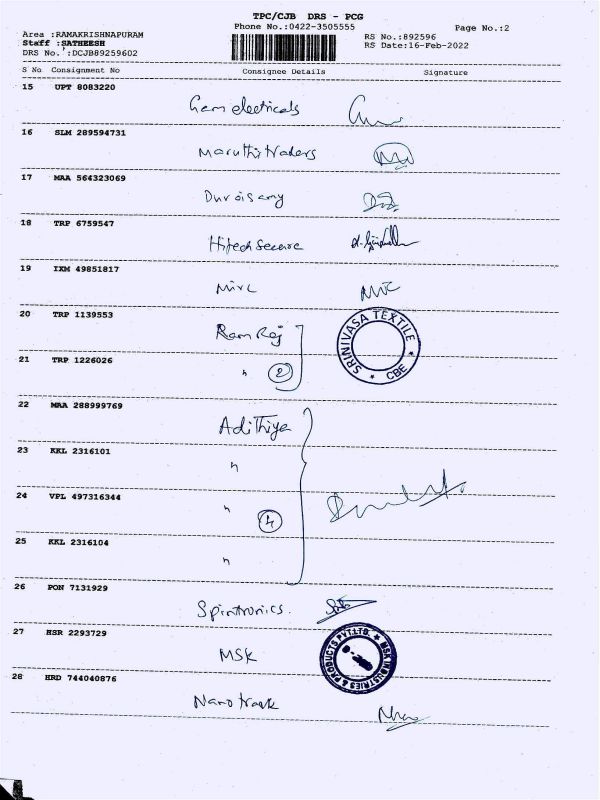 TPC/CJB DRS - PCG
Phone No.:0422-3505555
Page No.:2
Area :RAMAKRISHNAPURAM
RS No.:892596
Staff :SATHEESH
RS Date:16-Feb-2022
DRS No.:DCJB89259602
S No Consignment No Consignee Details Signature
15 UPT 8083220
Gem electricals
16 SLM 289594731
Maruthi traders
17 MAA 564323069
Duraisamy
18 TRP 6759547
Hitech Secure
19 IXM 49851817
Mirc
20 TRP 1139553
Ram Raj
SRINIVASA TEXTILE
* CBE *
21 TRP 1226026
" 2
22 MAA 288999769
Adithiya
23 KKL 2316101
"
24 VPL 497316344
" 4
25 KKL 2316104
"
26 PON 7131929
Spintronics.
27 HSR 2293729
MSK
MSK INDUSTRIES & PRODUCTS PVT.LTD. *
28 HRD 744040876
Nano track